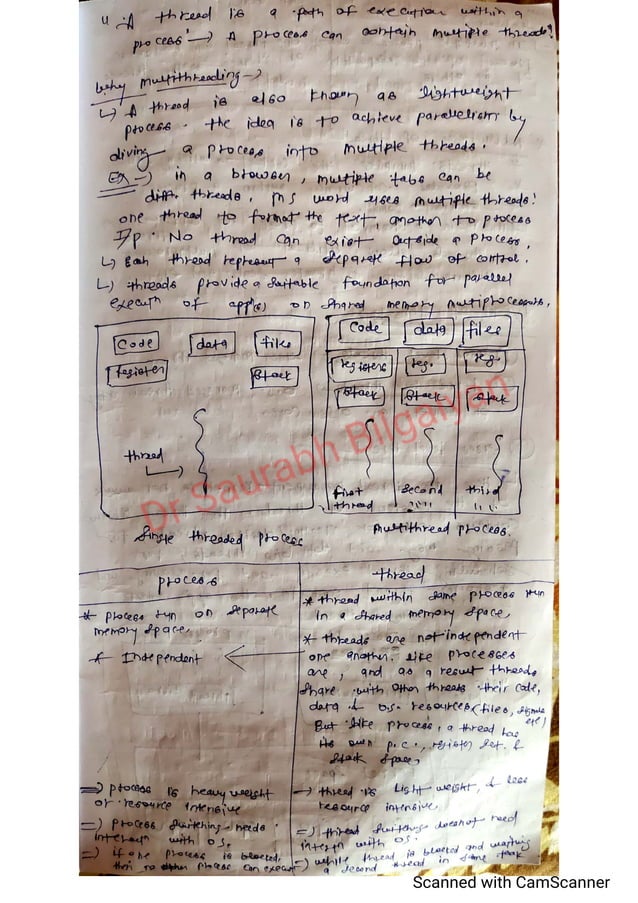 4 :A thread is a path of execution within a
process' → A process can contain multiple threads!
Why multithreading →
↳ A thread is also known as lightweight
process. the idea is to achieve parallelism by
diving a process into multiple threads.
Ex → in a browser, multiple tabs can be
diff. threads. MS word uses multiple threads:
one thread to format the text, another to process
I/p. No thread can exist outside a process.
↳ Each thread represent a separate flow of control.
↳ threads provide a suitable foundation for parallel
execun of app(s) on shared memory multiprocessors.
Code data files
register Stack
thread
Single threaded process
Code data files
registers reg. reg.
Stack Stack Stack
first second third
thread " "
Multithread process.
process thread
* process run on separate
memory space.
* Independent
* thread within same process run
in a shared memory space,
* threads are not independent
one another. like processes
are, and as a result threads
share with other threads their code,
data & O.S. resources (files, signals
etc)
But like process, a thread has
its own p.c., register set. &
stack space,
⇒ process is heavy weight
or resource intensive
⇒ process switching needs
interon with OS.
⇒ if one process is blocked,
then no other process can execut
→ thread is light weight, & less
resource intensive.
⇒ thread switching doesnot need
intern with OS.
⇒ while thread is blocked and waiting
a second thread in same task
Dr Saurabh Bilgaiyan
Scanned with CamScanner